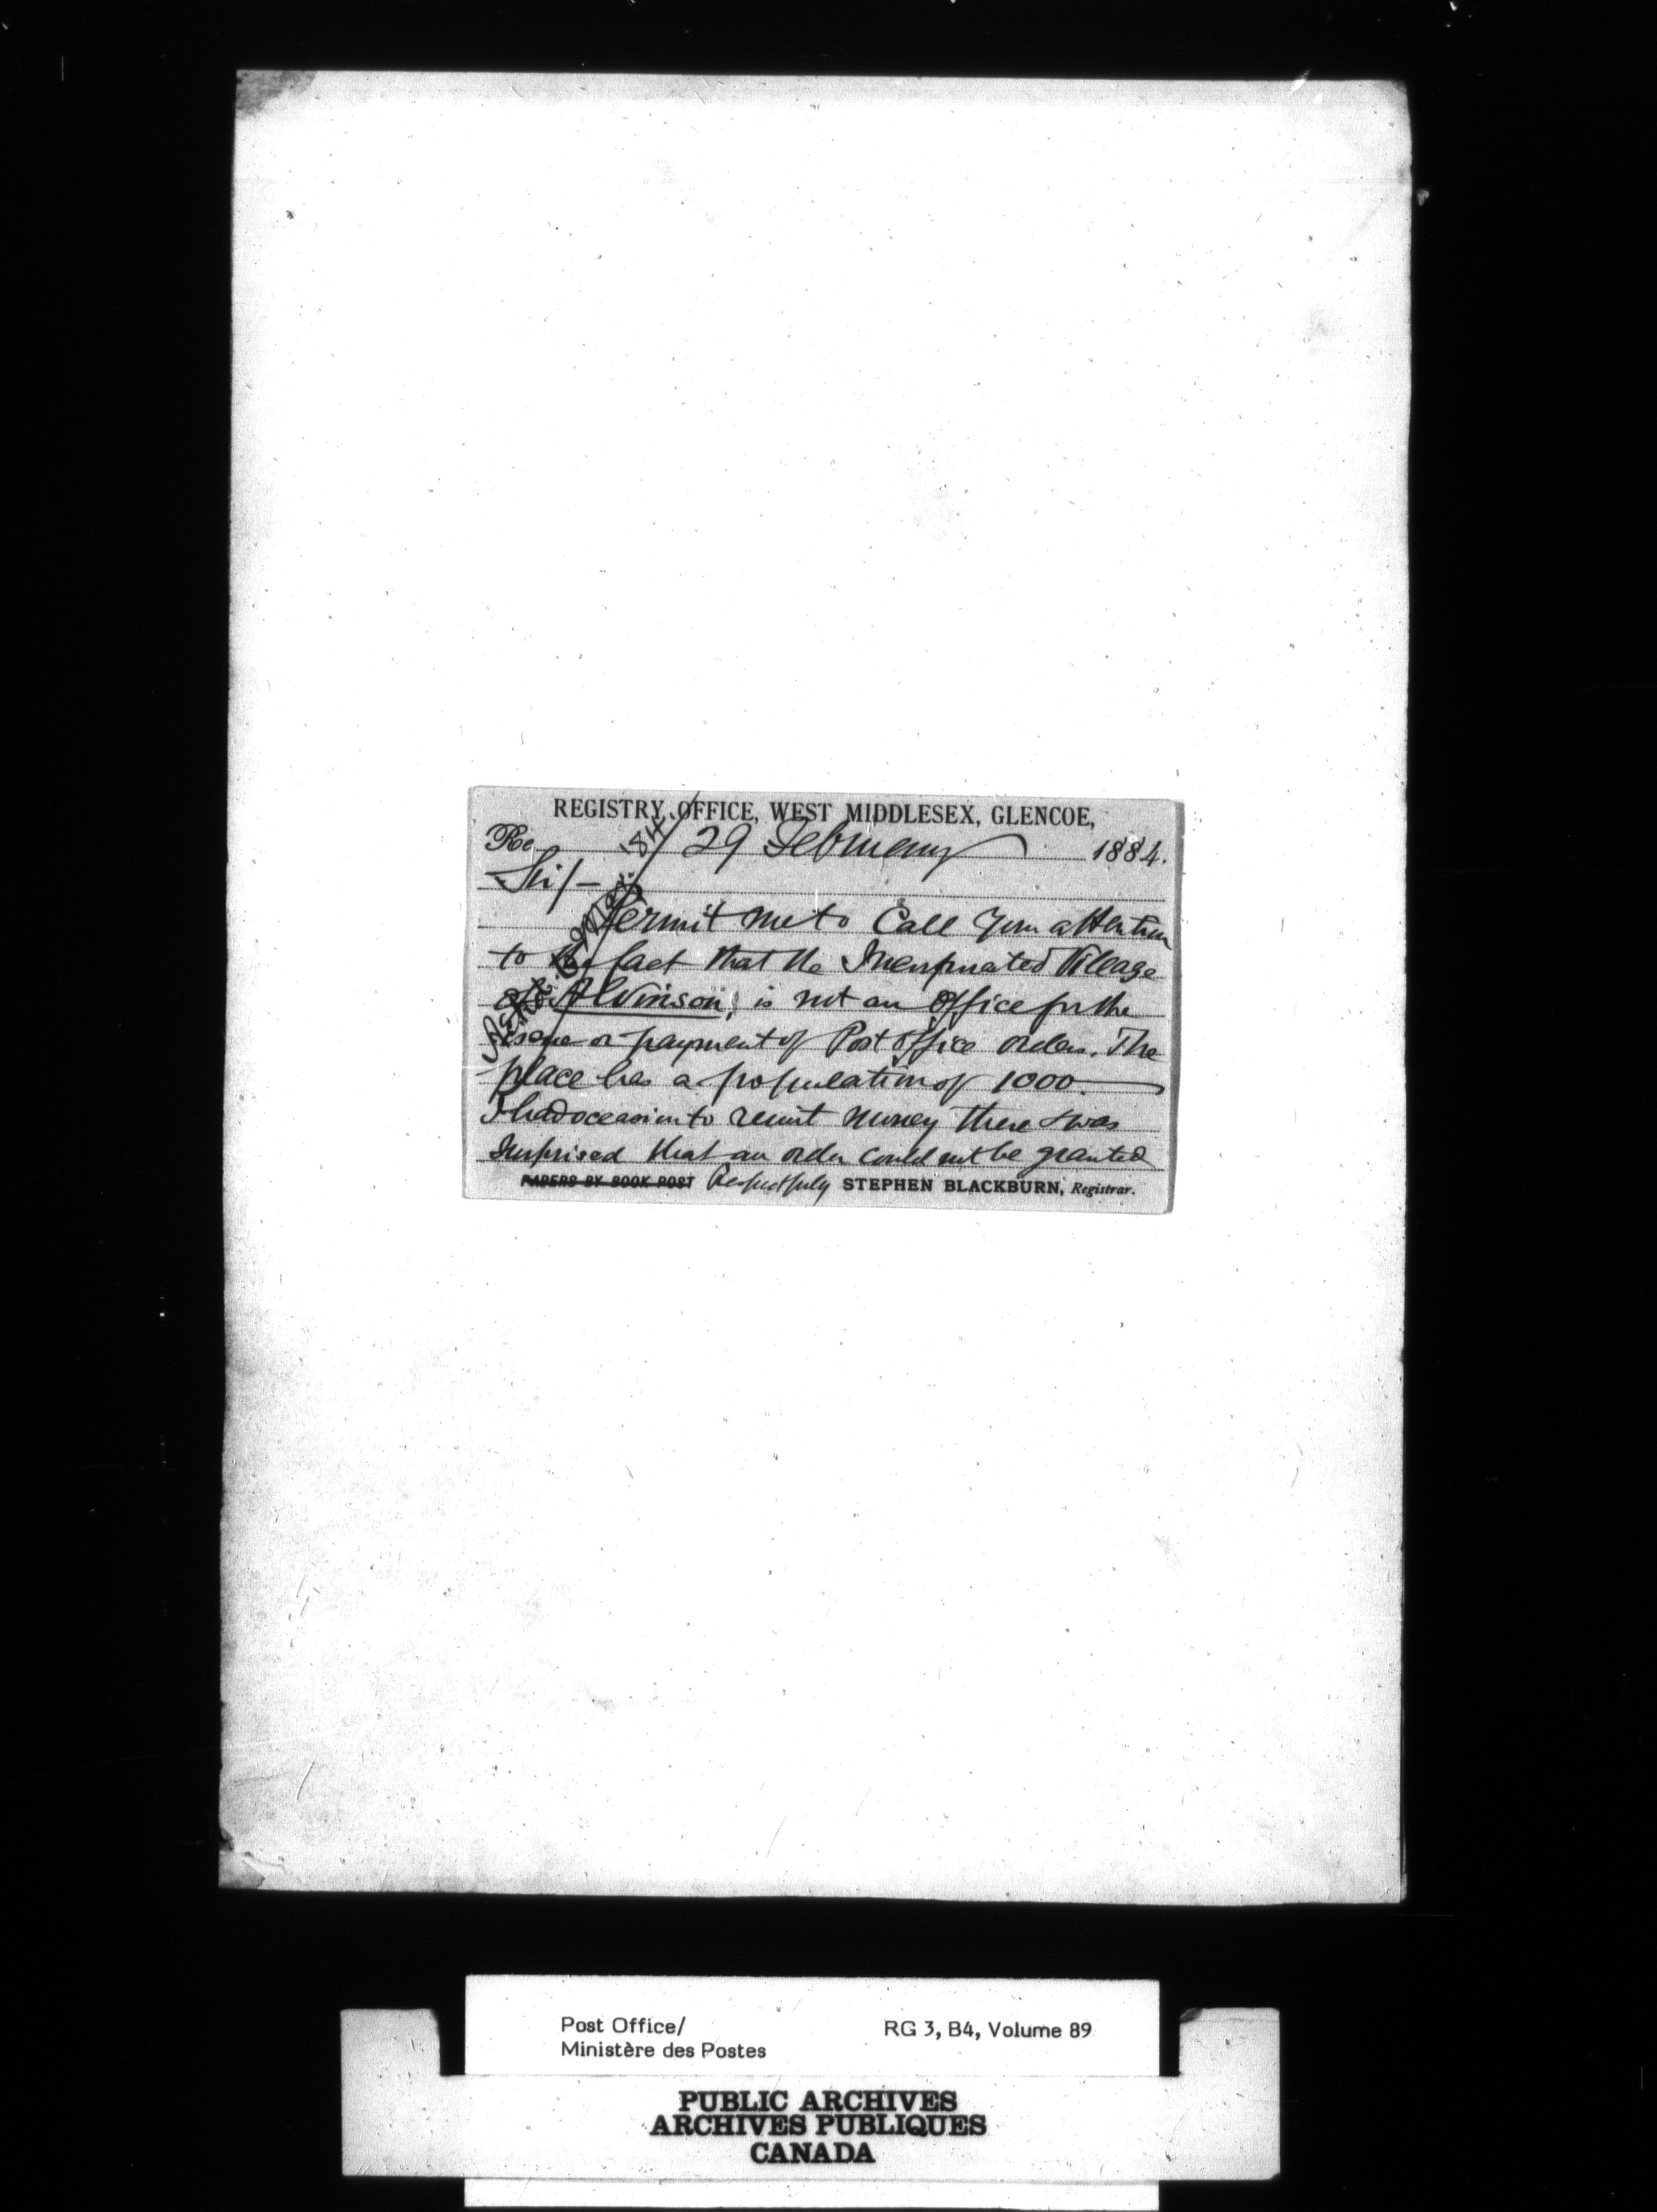 REGISTRY OFFICE, WEST MIDDLESEX, GLENCOE,
Re 29 February 1884.
Sir/-
Permit me to Call your attention
to the fact that the Incorporated Village
of Alvinson, is not an office for the
issue or payment of Post Office orders. The
place has a population of 1000.
I had occasion to remit money there & was
surprised that an order could not be granted
PAPERS BY BOOK POST Respectfully STEPHEN BLACKBURN, Registrar.
Post Office/ RG 3, B4, Volume 89
Ministère des Postes
PUBLIC ARCHIVES
ARCHIVES PUBLIQUES
CANADA